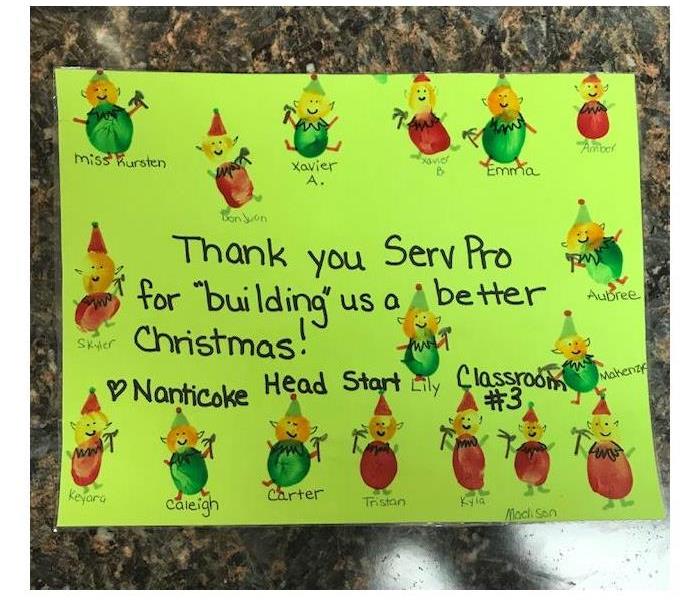 Miss Kursten
Don Juan
Xavier A.
Xavier B
Emma
Amber
Thank you Serv Pro
for "building" us a better
Christmas!
Skyler
Aubree
♡ Nanticoke Head Start Lily Classroom #3
Makenzie
Keyara
Caleigh
Carter
Tristan
Kyla
Madison